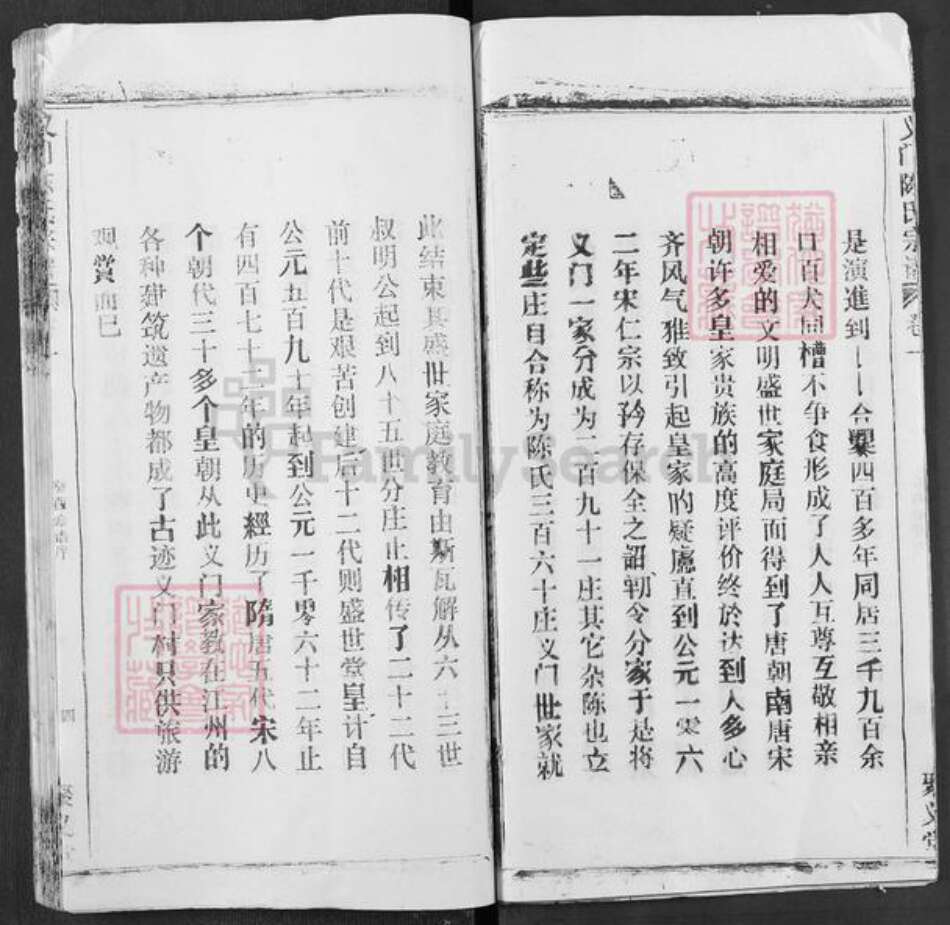 义门陈氏宗谱 卷一
是演進到 合爨四百多年同居三千九百余
口百犬同槽不争食形成了人人互尊互敬相亲
相爱的文明盛世家庭局面得到了唐朝南唐宋
朝许多皇家贵族的高度评价终於达到人多心
齐风气雅致引起皇家的疑慮直到公元一零六
二年宋仁宗以矜存保全之詔令分家于是将
义门一家分成为二百九十一庄其它杂陈也立
定些庄目合称为陈氏三百六十庄义门世家就
聚义堂
此结束其盛世家庭教育由斯瓦解从六十三世
叔明公起到八十五世分庄止相传了二十二代
前十代是艰苦创建后十二代则盛世堂皇计自
公元五百九十年起到公元一千零六十二年止
有四百七十二年的历史經历了隋唐五代宋八
个朝代三十多个皇朝从此义门家教在江州的
各种建筑遗产物都成了古迹义门村只供旅游
观赏而已
四
FamilySearch